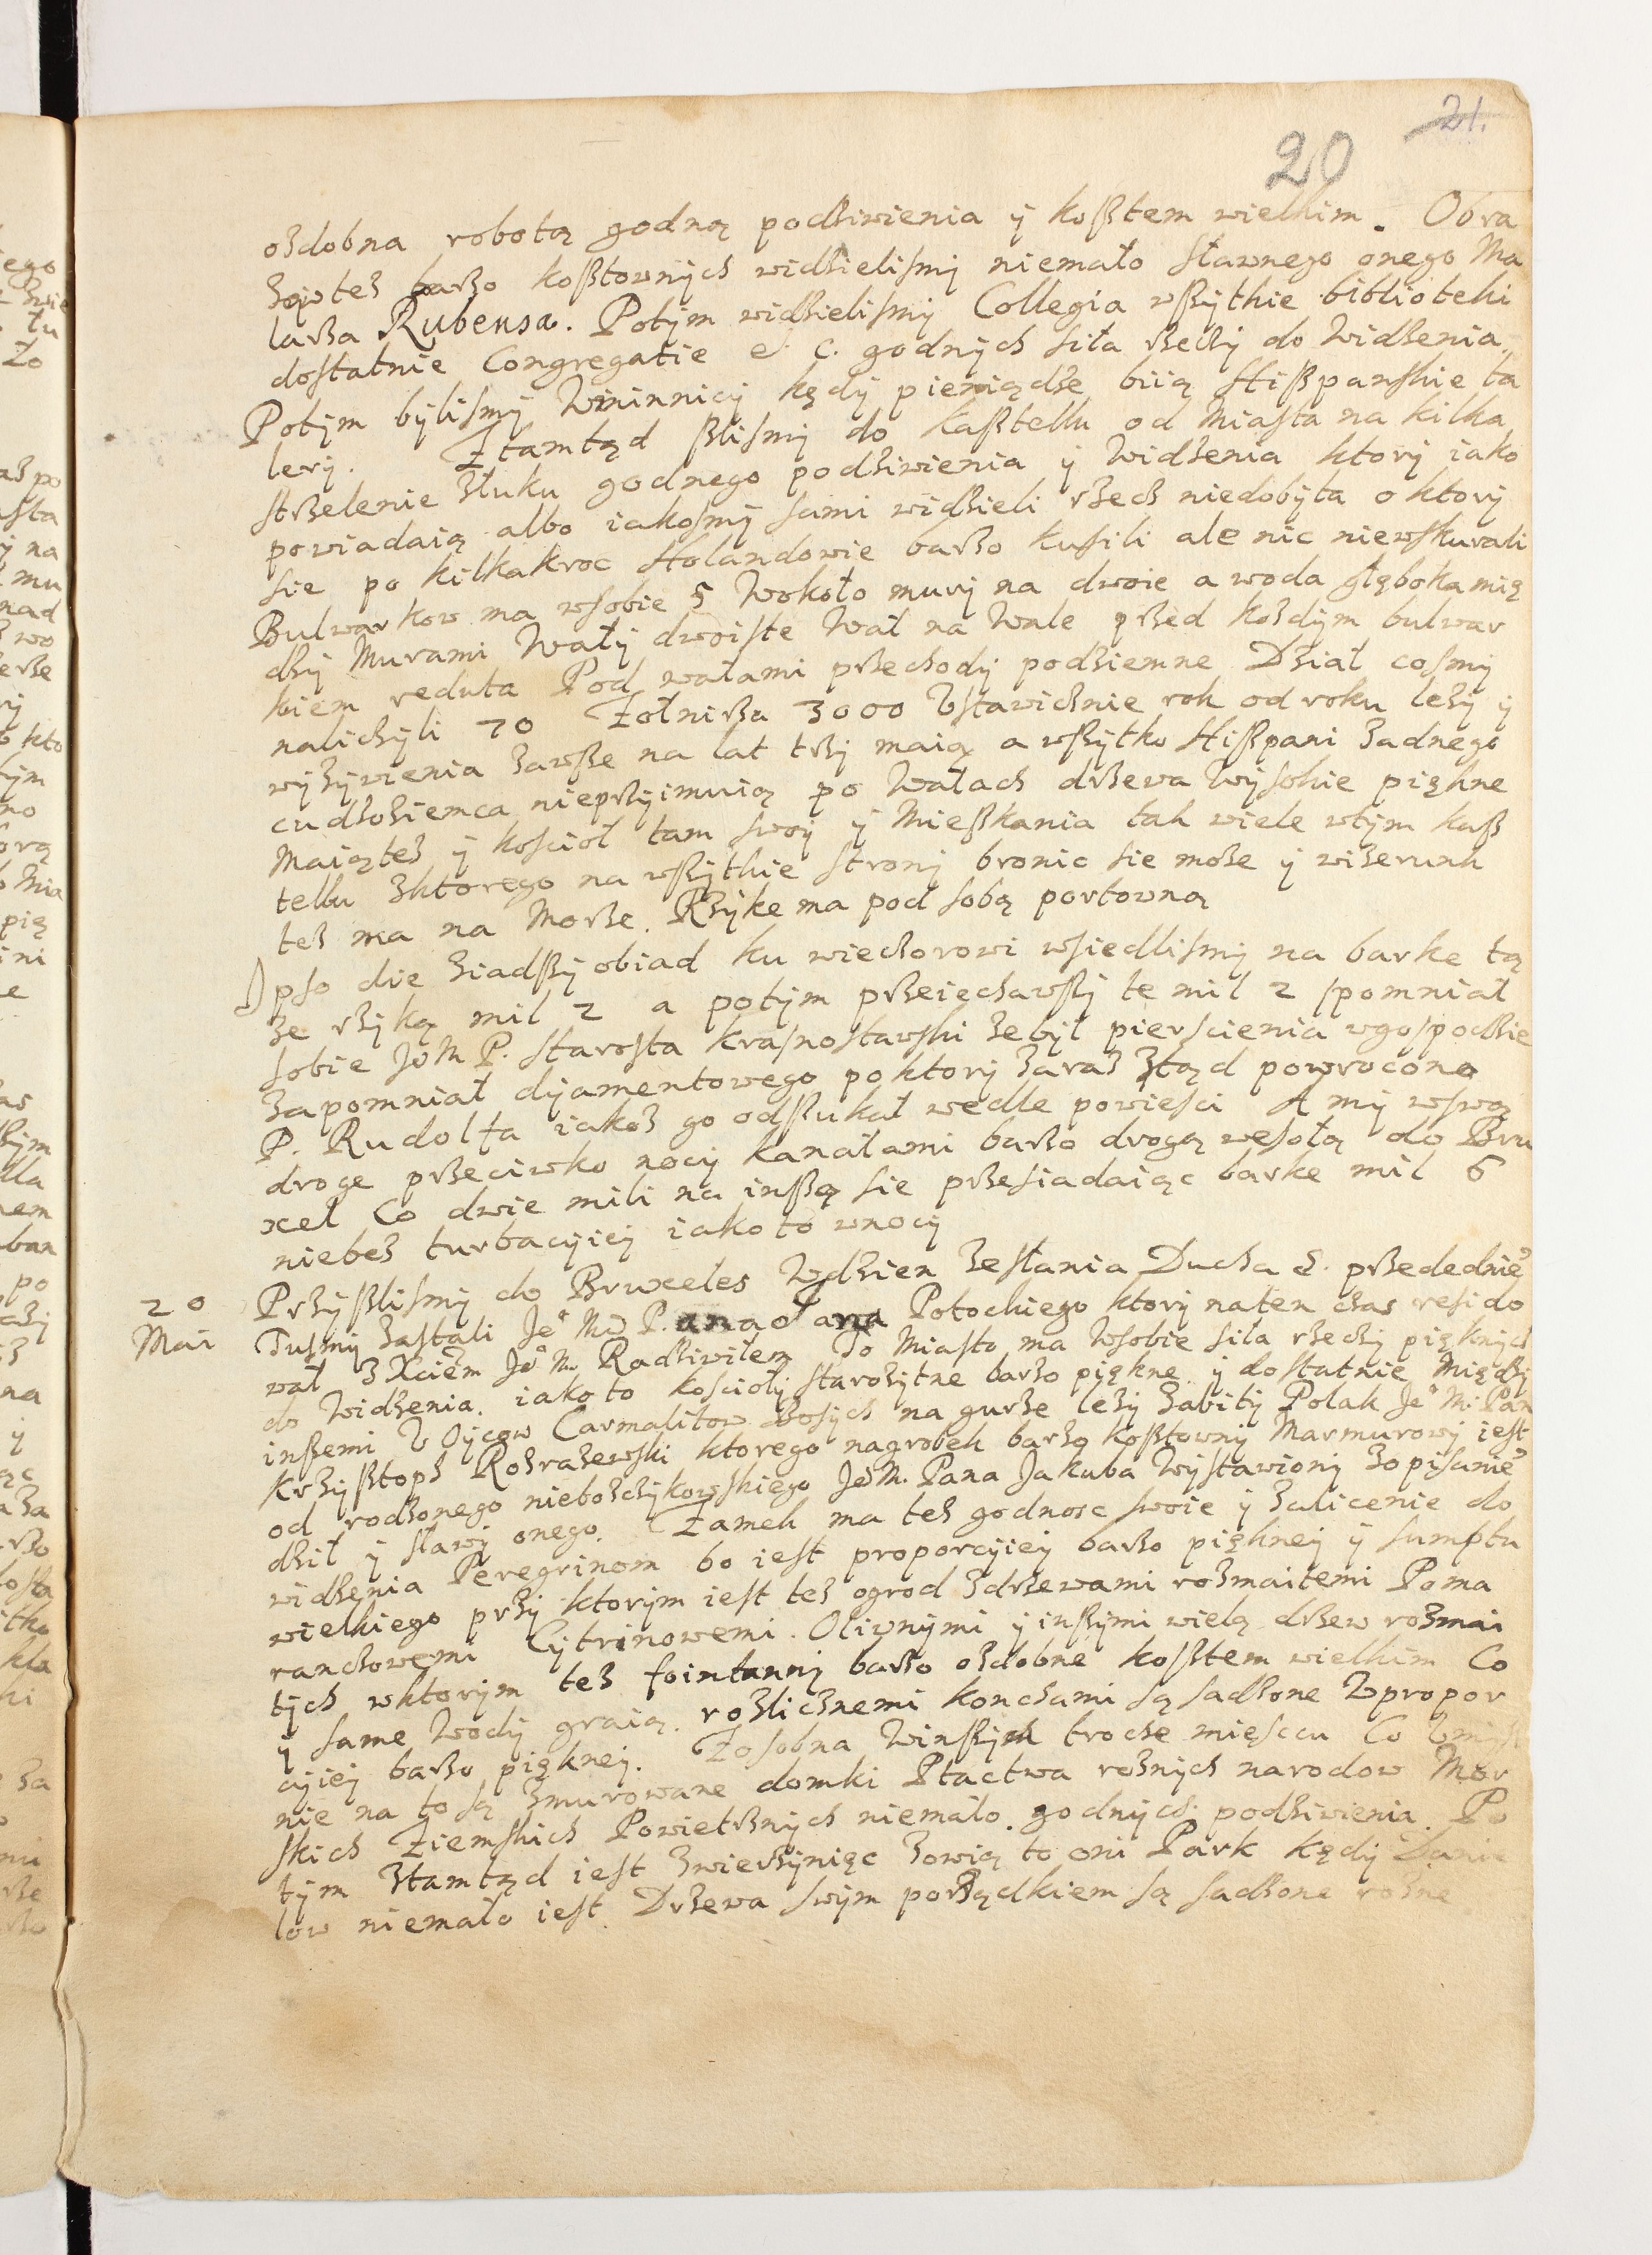 21.
20
ozdobna robotą godną podziwienia ÿ kosztem wielkim. Obra
zow tez barzo kosztownÿch widzielismÿ niemało sławnego onego Ma
larza Rubensa. Potÿm widzielismÿ Collegia wszÿtkie biblioteki
dostatnie Congregatie & c. godnÿch siła rzeczÿ do Widzenia
Potÿm bÿlismÿ Wminnicÿ kędÿ pieniądze biią Hiszpanskie ta
lerÿ. Ztamtąd szlismÿ do kasztellu od Miasta na kilka
strzelenie złuku godnego podziwienia ÿ Widzenia ktorÿ iako
powiadaią albo iakosmÿ sami widzieli rzecz niedobÿta o ktorÿ
sie po kilkakroc Holandowie barzo kusili ale nic niewskurali
Bulwarkow ma wsobie 5 Wokoło murÿ na dwoie a woda głęboka mię
dzÿ Murami Wałÿ dwoiste Wał na Wale przed kozdÿm bulwar
kiem reduta Pod wałami przechodÿ podziemne Dział cosmÿ
naliczÿli 70 Zołnirza 3000 Vstawicznie rok od roku lezÿ ÿ
wÿzÿwienia zawsze na lat trzÿ maią a wszÿtko Hiszpani zadnego
cudzoziemca nieprzÿimuią po Wałach drzewa Wÿsokie piękne
Maiątez ÿ koscioł tam swoÿ ÿ Mieszkania tak wiele wtÿm kasz
tellu zktorego na wszÿtkie stronÿ bronic sie moze ÿ wizerunk
tez ma na Morze. Rzÿke ma pod sobą portowną
Ipso die ziadszÿ obiad ku wieczorowi wsiedlismÿ na barke tą
ze rzÿką mil 2 a potÿm przeiechawszÿ te mil 2 spomniał
sobie JoM P. starosta krasnostawski ze bÿł pierscienia wgospodzie
zapomniał dÿamentowego po ktorÿ zaraz ztąd powrocono
P. Rudolfa iakoz go odszukał wedle powiesci A mÿ wswą
droge przeciwko nocÿ kanałami barzo drogą wesołą do Bru
xel Co dwie mili na inszą sie przesiadaiąc barke mil 6
niebez turbacÿieÿ iako to wnocÿ
20
Mai
Przÿszlismÿ do Bruxeles Wdzien Zesłania Ducha S. przedednie
Tusmÿ zastali Je M P. Potockiego ktorÿ naten czas resido
wał z Xciem Jo M. Radziwiłem To Miasto ma Wsobie siła rzeczÿ pięknÿch
do Widzenia. iako to kosciołÿ starozÿtne barzo piękne ÿ dostatnie Międzÿ
inszemi V Oÿcow Carmalitow Bosÿch na gurze lezÿ zabitÿ Polak Je M. Pan
Krzÿsztoph Rozrazewski ktorego nagrobek barzo kosztownÿ Marmurowÿ iest
od rodzonego nieboszczÿkowskiego JoM. Pana Jakuba Wÿstawionÿ zopisanie
dził ÿ sławÿ onego. Zamek ma tez godnosc swoie ÿ zalicenie do
widzenia Peregrinom bo iest proporcÿieÿ barzo piękneÿ ÿ sumptu
wielkiego przÿ ktorÿm iest tez ogrod zdrzewami rozmaitemi Poma
ranczowemi Cÿtrinowemi. Oliwnÿmi ÿ inszÿmi wielą drzew rozmai
tÿch wktorÿm tez fointannÿ barzo ozdobne kosztem wielkim Co
ÿ same Wodÿ graią. rozlicznemi konchami są sadzone Vpropor
cÿieÿ barzo piękneÿ. Zosobna Winszÿm troche mięscu Co
nie na to są zmurowane domki Ptactwa roznÿch narodow Mor
skich Ziemskich Powietrznÿch niemało godnÿch podziwienia. Po
tÿm ztamtąd iest zwierzÿniec zowią to oni Park kędÿ Danie
low niemało iest. Drzewa swÿm porządkiem są sadzone rozne